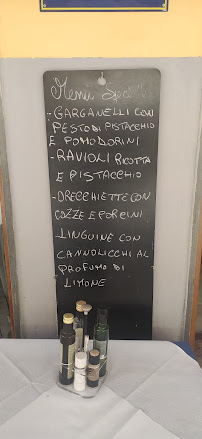 Menù Special
- GARGANELLI CON
PESTO DI PISTACCHIO
E POMODORINI
- RAVIOLI RICOTTA
E PISTACCHIO
- ORECCHIETTE CON
COZZE E PORCINI
LINGUINE CON
CANNOLICCHI AL
PROFUMO DI
LIMONE